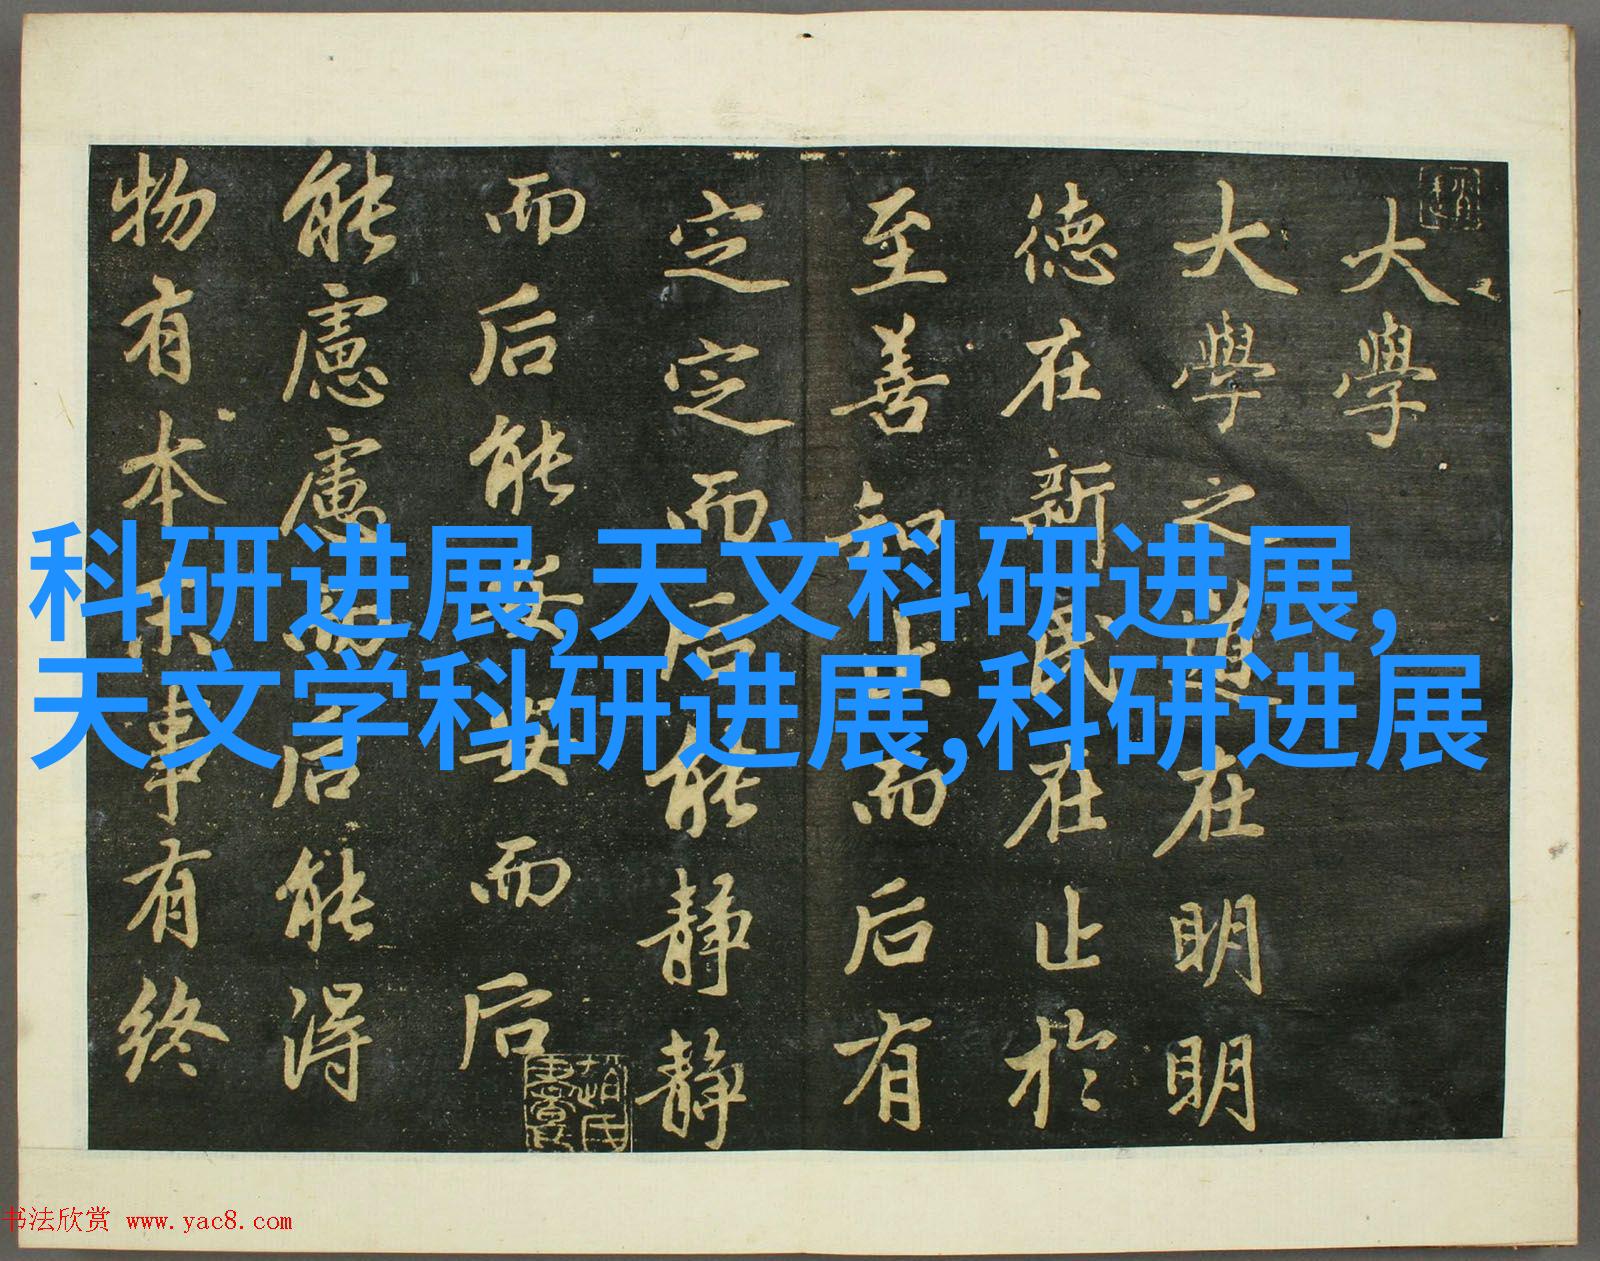 科研进展,天文科研进展,
天文学科研进展,科研进展
大學
大學之道在明明
德在新民在止於
至善知止而后有
定定而后能静静
而后能安安而后
能慮慮而后能得
物有本末事有終
书法欣赏 www.yac8.com